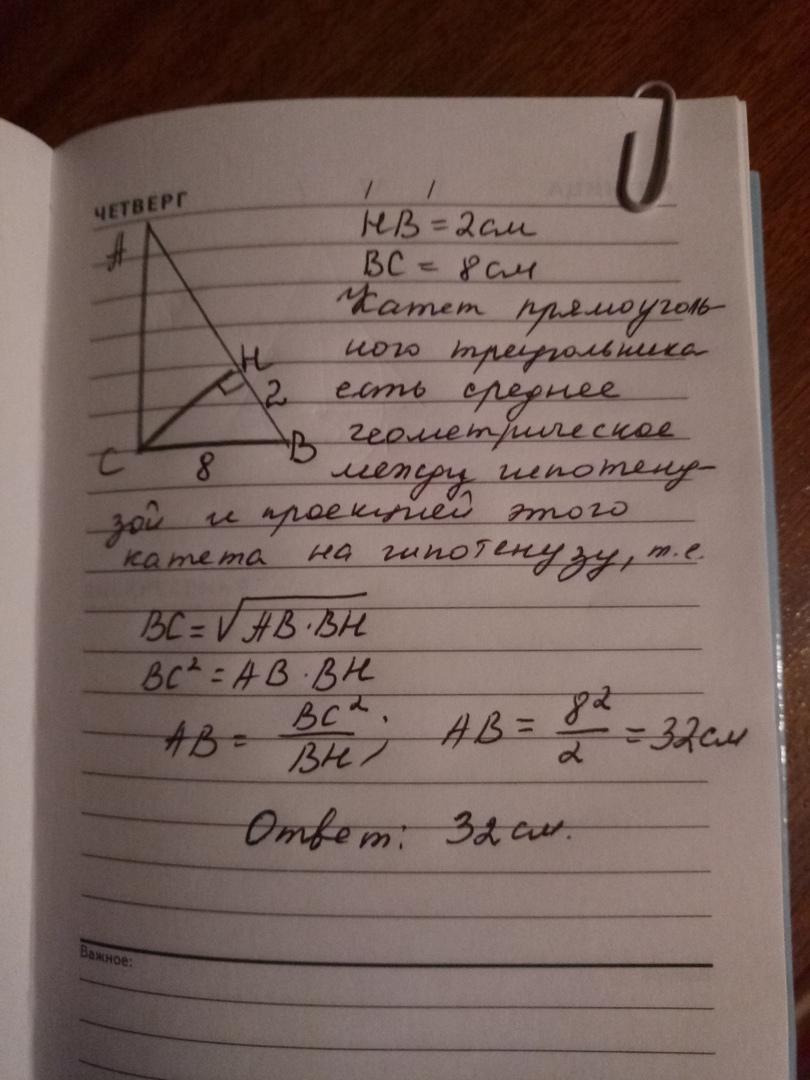 ЧЕТВЕРГ
HB = 2см
BC = 8см
Катет прямоуголь-
ного треугольника
есть среднее
геометрическое
между гипотену-
зой и проекцией этого
катета на гипотенузу, т.е.
A
H
2
C
8
B
BC = √AB · BH
BC² = AB · BH
AB = BC²/BH; AB = 8²/2 = 32см
Ответ: 32 см.
Важное: